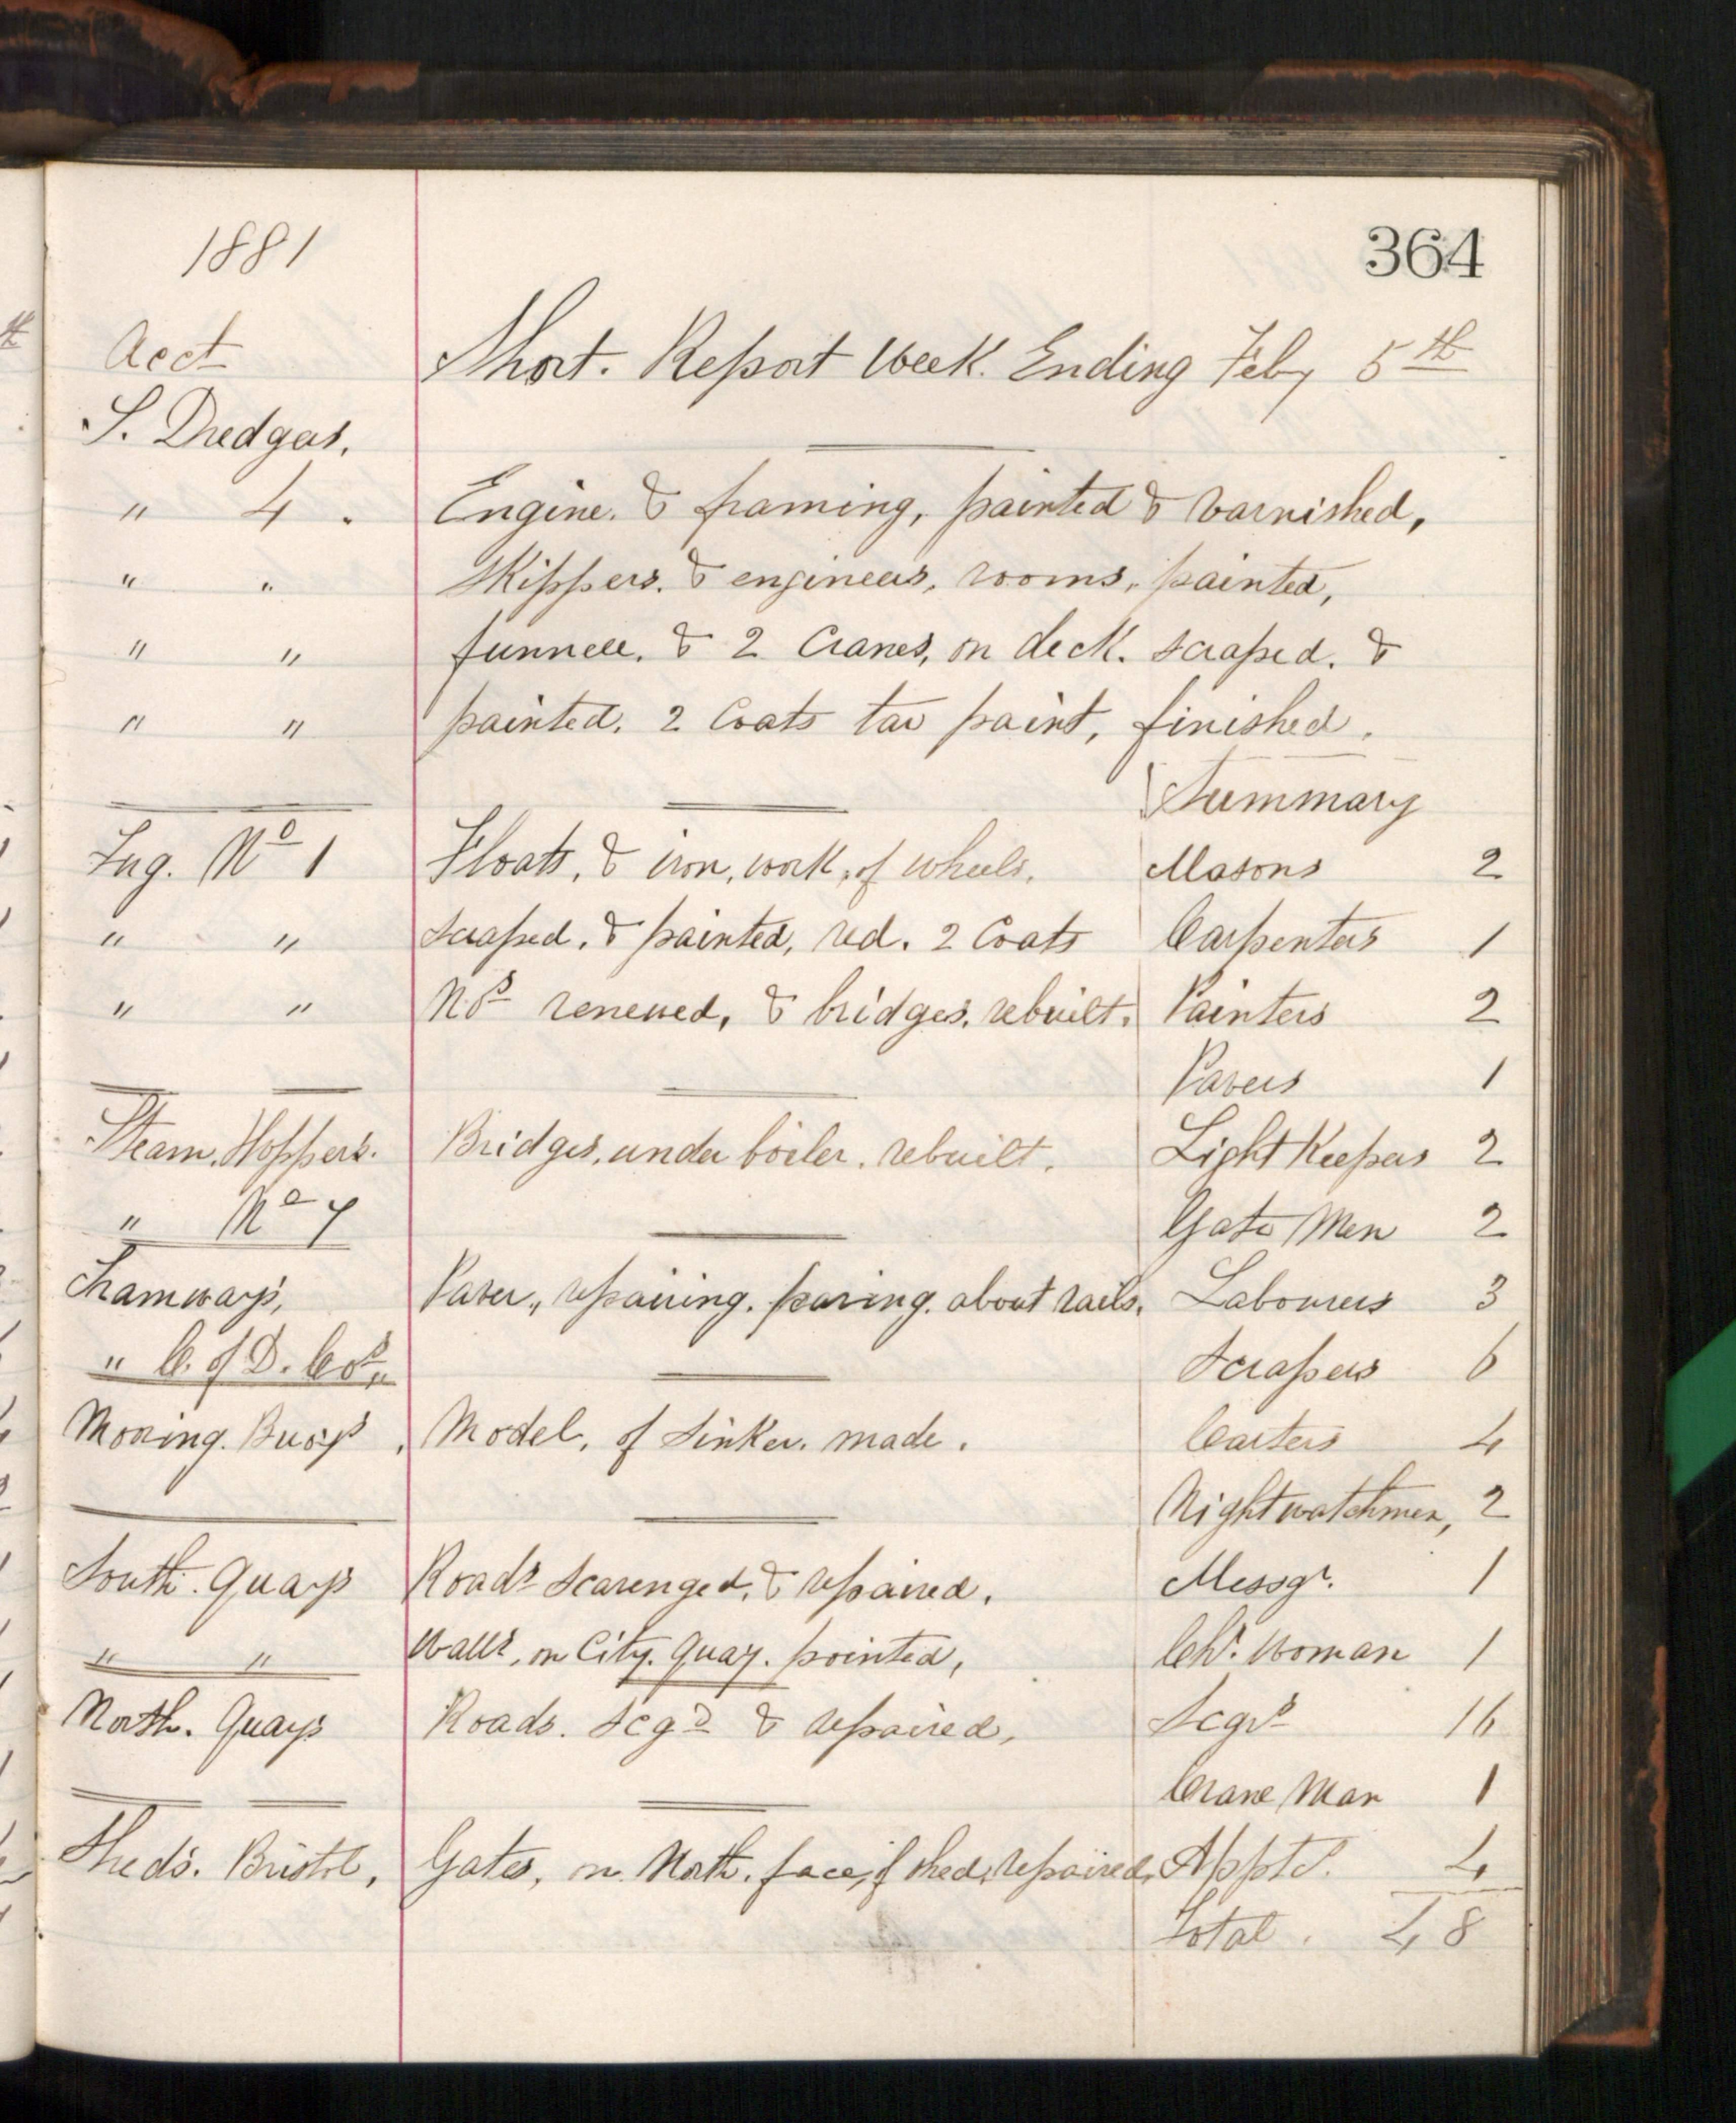 364
1881
Acct Short. Report Week. Ending Feby 5th
S. Dredgers.
" 4 . Engine. & framing, painted & varnished,
" " Skippers. & engineers, rooms, painted,
" " funnell. & 2 Cranes, on deck. scraped. &
" " painted. 2 Coats tar paint, finished.
Summary
Tug. No 1 Floats, & iron, work, of wheels. Masons 2
" " scraped. & painted, red. 2 Coats Carpenters 1
" " Nos renewed, & bridges. rebuilt. Painters 2
Pavers 1
Steam. Hoppers. Bridges, under boiler. rebuilt. Light Keepers 2
" No 4 Gate Men 2
Tramways, Paver, repairing. paving. about rails. Labourers 3
" C. of D. Cos, Scrapers 6
Mooring. Buoys, Model, of sinker. made. Carters 4
Nightwatchmen, 2
South. Quays Roads Scavenged, & repaired. Messgr. 1
" " Walls, on City. Quay. pointed, Chr. Woman 1
North. Quays Roads. Scgd & repaired, Scgrs 16
Crane Man 1
Sheds. Bristol, Gates, on North. face, of shed, repaired, Appts. 4
Total. 48